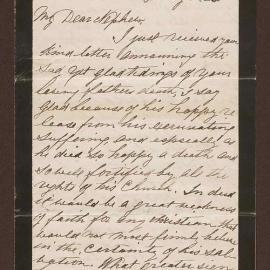 My Dear Nephew,
I just received your
kind letter announcing the
sad yet glad tidings of your
loving fathers death, I say
glad because of his happy re
lease from his excruciating
suffering, and especially as
he died so happy a death and
so well fortified by all the
rights of his Church. In deed
it would be a great weakness
of faith for any Christian that
would not most firmly believe
in the certainty of his sal
vation. What greater sign